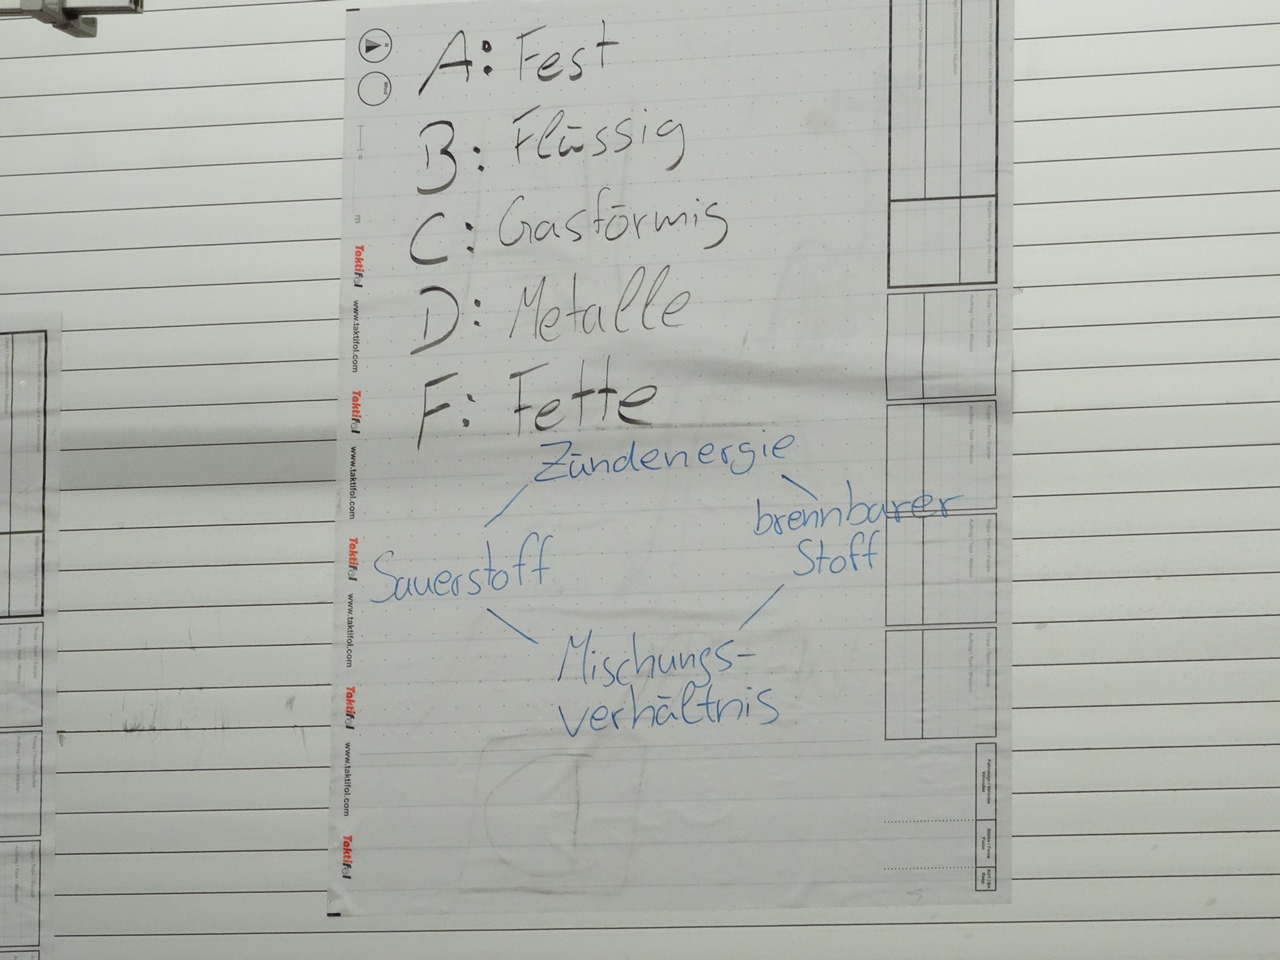 A: Fest
B: Flüssig
C: Gasförmig
D: Metalle
F: Fette
Zündenergie
brennbarer
Stoff
Sauerstoff
Mischungs-
verhältnis
Taktifol www.taktifol.com
Taktifol www.taktifol.com
Taktifol www.taktifol.com
Taktifol www.taktifol.com
Taktifol